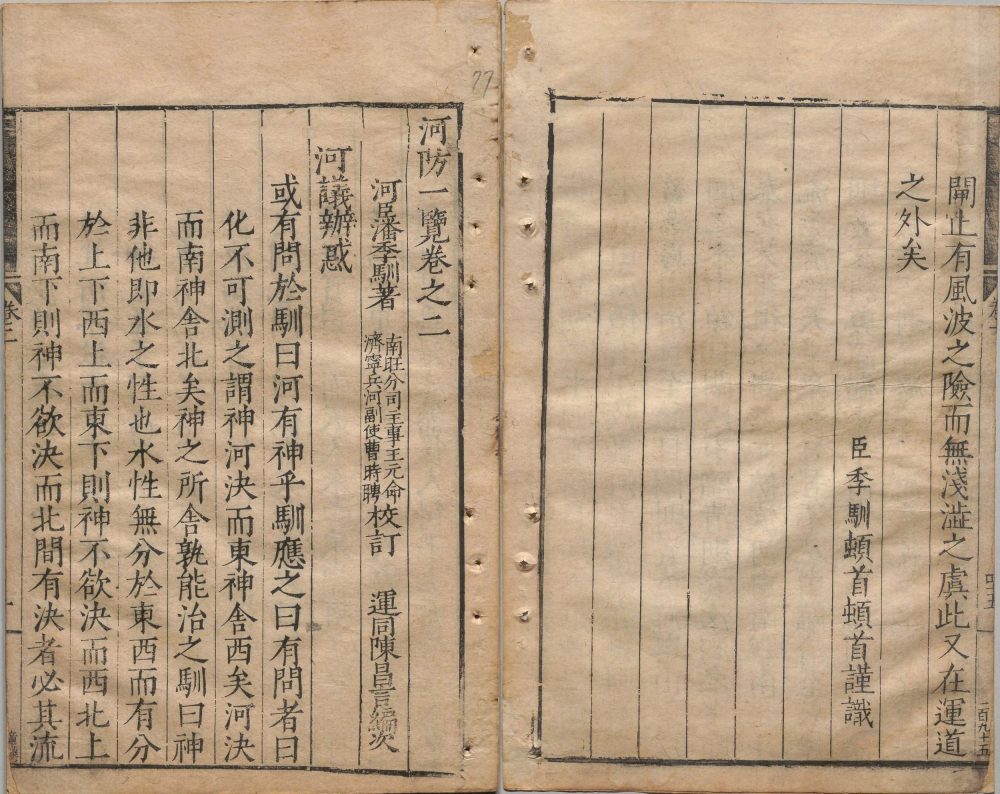 閘止有風波之險而無淺澁之虞此又在運道
之外矣
臣季馴頓首頓首謹識
四十五
一百九十五
77
河防一覽卷之二
河臣潘季馴著
南旺分司主事王元命
濟寧兵河副使曹時聘
校訂
運同陳昌言編次
河議辦惑
或有問於馴曰河有神乎馴應之曰有問者曰
化不可測之謂神河決而東神舍西矣河決
而南神舍北矣神之所舍孰能治之馴曰神
非他即水之性也水性無分於東西而有分
於上下西上而東下則神不欲決而西北上
而南下則神不欲決而北間有決者必其流
卷二
一